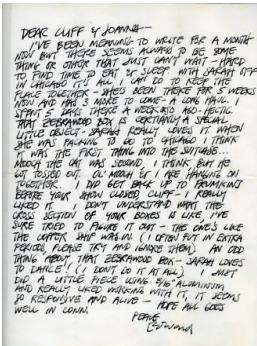 DEAR CLIFF & JOANNA—
I'VE BEEN MEANING TO WRITE FOR A MONTH
NOW BUT THERE SEEMS ALWAYS TO BE SOME
THING OR OTHER THAT JUST CAN'T WAIT — HARD
TO FIND TIME TO EAT & SLEEP WITH SARAH OFF
IN CHICAGO IT'S ALL I CAN DO TO KEEP THE
PLACE TOGETHER — SHE'S BEEN THERE FOR 5 WEEKS
NOW AND HAS 3 MORE TO COME — A LONG HAUL. I
SPENT 5 DAYS THERE A WEEK AGO — HECTIC.
THAT ZEBRAWOOD BOX IS CERTIANLY A SPECIAL
LITTLE OBJECT — SARAH REALLY LOVES IT. WHEN
SHE WAS PACKING TO GO TO CHICAGO I THINK
IT WAS THE FIRST THING INTO THE SUITCASE —
MOOCH THE CAT WAS SECOND I THINK BUT HE
GOT TOSSED OUT. OL' MOOCH & I ARE HANGING ON
TOGETHER. I DID GET BACK UP TO
BEFORE YOUR SHOW CLOSED CLIFF — I REALLY
LIKED IT. I DON'T UNDERSTAND WHAT THE
CROSS SECTION OF YOUR BOXES IS LIKE, I'VE
SURE TRIED TO FIGURE IT OUT — THE ONE'S LIKE
THE COPPER SHE WAS IN. (I OFTEN PUT IN EXTRA
PERIODS, PLEASE TRY AND IGNORE THEM) AN ODD
THING ABOUT THAT ZEBRAWOOD BOX — SARAH LOVES
TO DANCE! (I DON'T DO IT AT ALL) I JUST
DID A LITTLE PIECE USING ALUMINUM
AND REALLY LIKED WORKING WITH IT, IT SEEMS
SO RESPONSIVE AND ALIVE — HOPE ALL GOES
WELL IN CONN.
PEACE